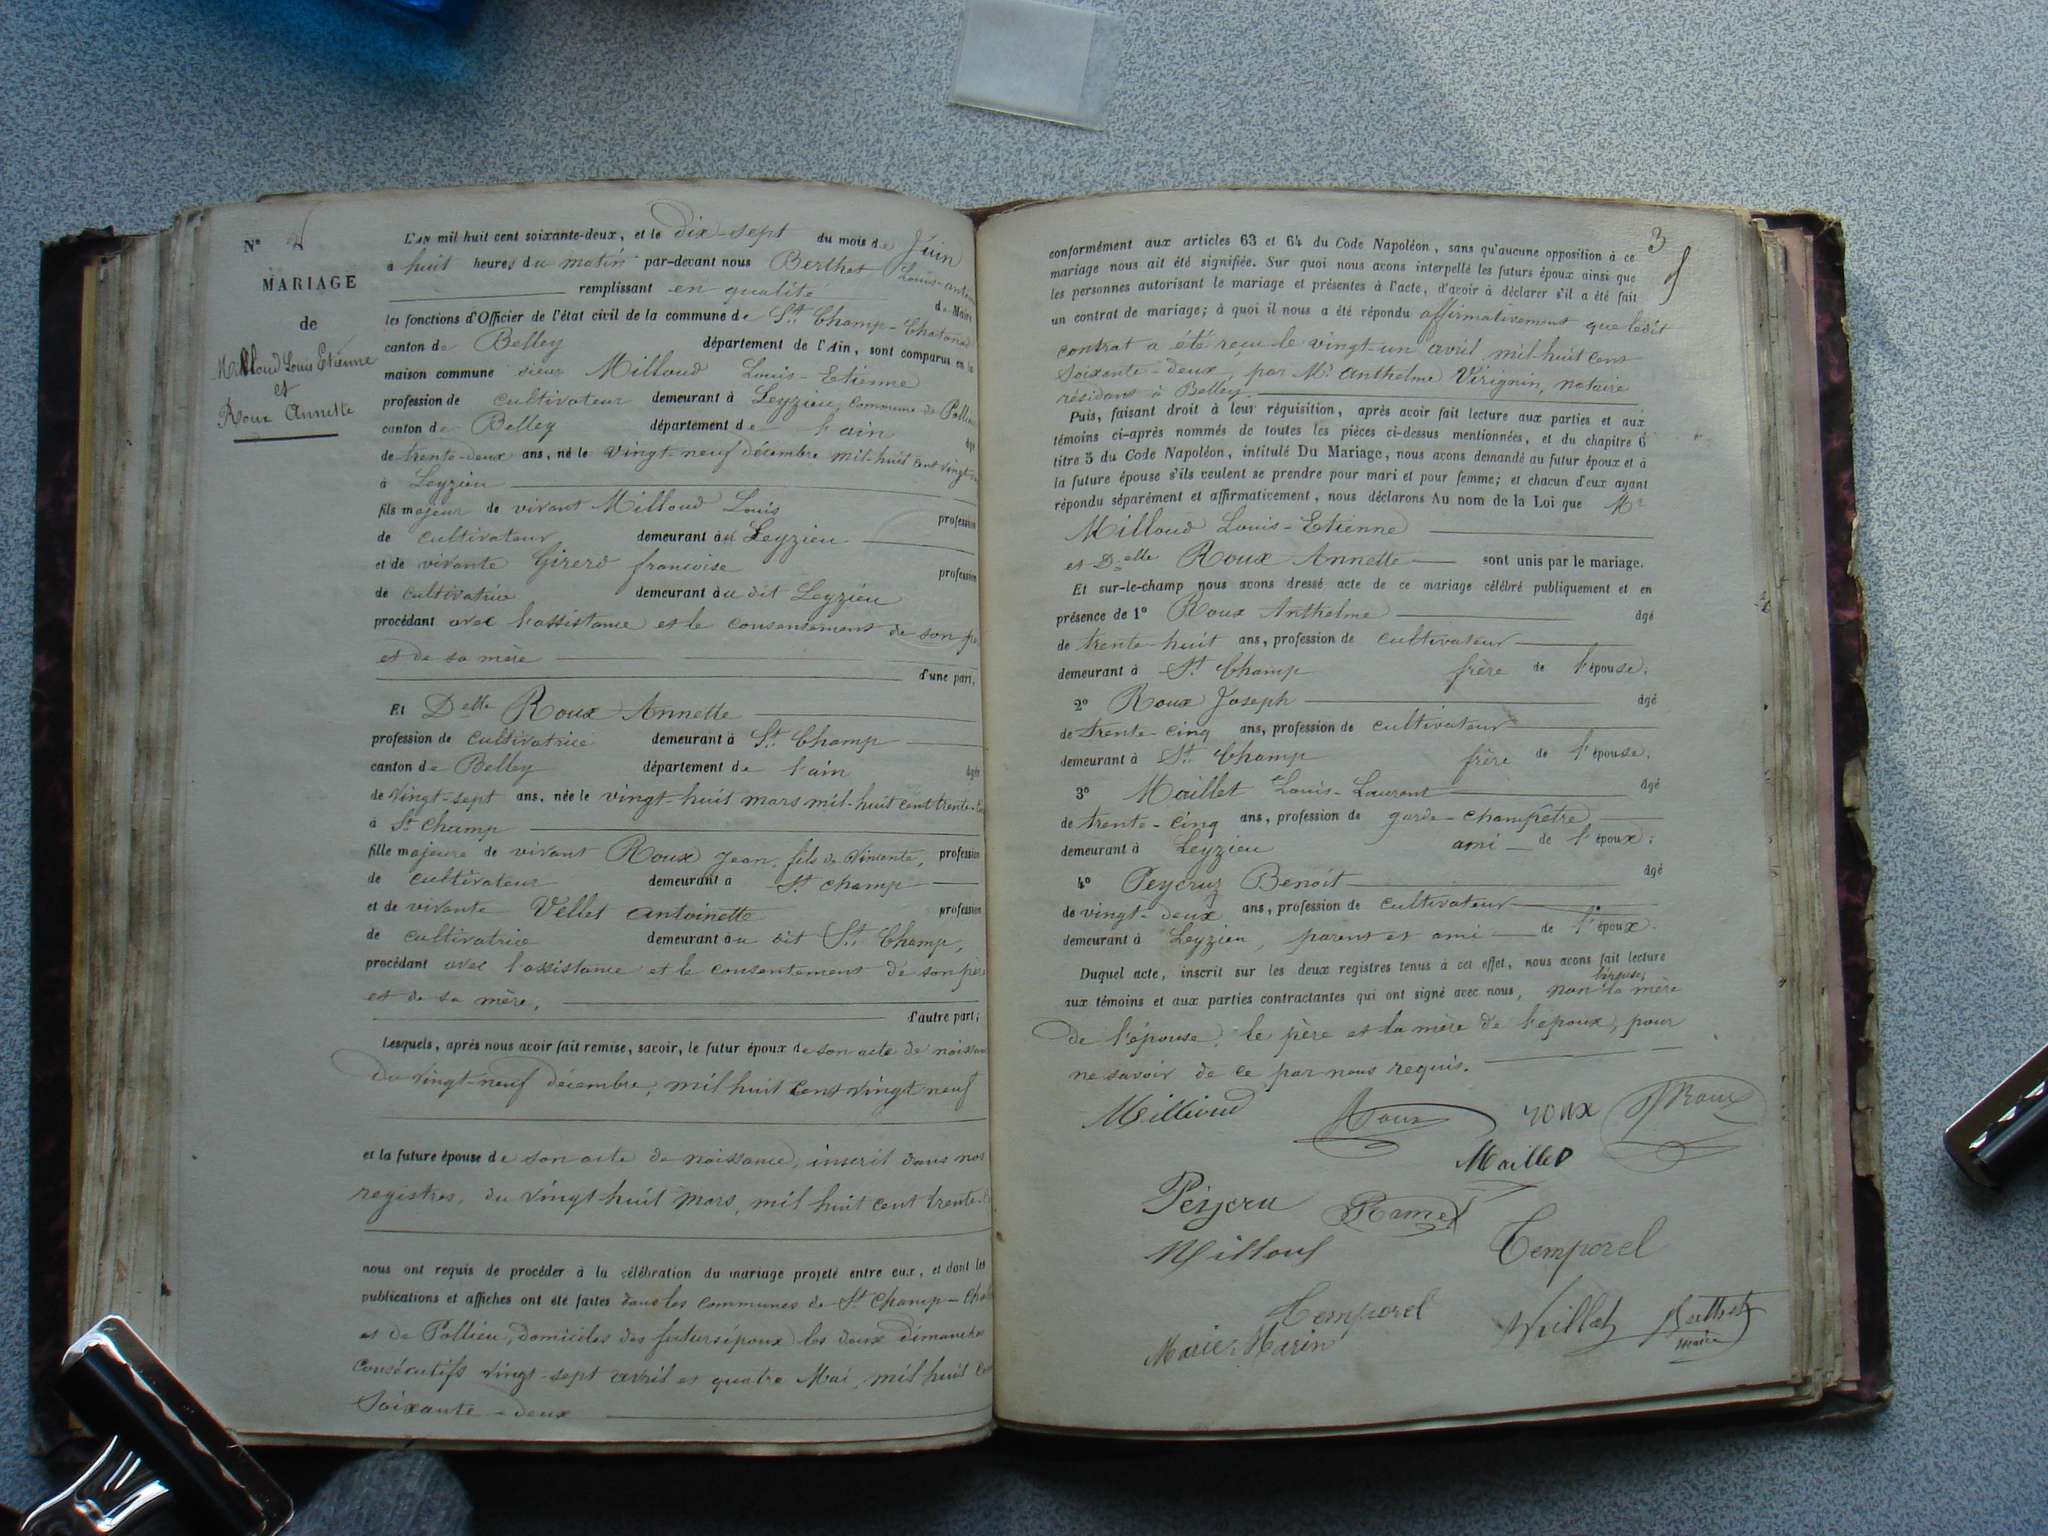 N° 2
MARIAGE
de
Millioud Louis Etienne
et
Roux Annette
L'AN mil huit cent soixante-deux, et le dix-sept du mois de Juin
à huit heures du matin par-devant nous Berthet Louis-antoine
remplissant en qualité de Maire
les fonctions d'Officier de l'état civil de la commune de St. Champ-Chatonod
canton de Belley département de l'Ain, sont comparus en la
maison commune sieur Milloud Louis-Etienne
profession de cultivateur demeurant à Leyzieu, commune de Pollieu
canton de Belley département de l'ain âgé
de trente-deux ans, né le vingt-neuf décembre mil-huit cent vingt
à Leyzieu
fils majeur de vivant Milloud Louis profession
de cultivateur demeurant au Leyzieu
et de vivante Girerd francoise profession
de cultivatrice demeurant au dit Leyzieu
procédant avec l'assistance et le consentement de son père
et de sa mère
d'une part,
Et Delle Roux Annette
profession de cultivatrice demeurant à St. Champ
canton de Belley département de l'ain âgée
de vingt-sept ans, née le vingt-huit mars mil-huit cent trente-
à St Champ
fille majeure de vivant Roux Jean, fils de Vincente, profession
de cultivateur demeurant à St. champ
et de vivante Vellet antoinette profession
de cultivatrice demeurant au dit St. Champ,
procédant avec l'assistance et le consentement de son père
et de sa mère,
d'autre part;
Lesquels, après nous avoir fait remise, savoir, le futur époux de son acte de naissance
du vingt-neuf décembre, mil huit cent vingt neuf
et la future épouse de son acte de naissance, inscrit dans nos
registres, du vingt-huit mars, mil huit cent trente-
nous ont requis de procéder à la célébration du mariage projeté entre eux, et dont les
publications et affiches ont été faites dans les communes de St Champ-Cha
et de Pollieu, domiciles des futurs époux les deux dimanches
consécutifs vingt-sept avril et quatre Mai, mil huit cent
soixante-deux
3
conformément aux articles 63 et 64 du Code Napoléon, sans qu'aucune opposition à ce
mariage nous ait été signifiée. Sur quoi nous avons interpellé les futurs époux ainsi que
les personnes autorisant le mariage et présentes à l'acte, d'avoir à déclarer s'il a été fait
un contrat de mariage; à quoi il nous a été répondu affirmativement que ledit
contrat a été reçu le vingt-un avril mil-huit cent
soixante-deux, par Me Anthelme Virignin, notaire
résidant à Belley.
Puis, faisant droit à leur réquisition, après avoir fait lecture aux parties et aux
témoins ci-après nommés de toutes les pièces ci-dessus mentionnées, et du chapitre 6
titre 5 du Code Napoléon, intitulé Du Mariage, nous avons demandé au futur époux et à
la future épouse s'ils veulent se prendre pour mari et pour femme; et chacun d'eux ayant
répondu séparément et affirmativement, nous déclarons Au nom de la Loi que Mr
Milloud Louis-Etienne
et Delle Roux Annette sont unis par le mariage.
Et sur-le-champ nous avons dressé acte de ce mariage célébré publiquement et en
présence de 1° Roux Anthelme âgé
de trente-huit ans, profession de cultivateur
demeurant à St Champ frère de l'épouse.
2° Roux Joseph âgé
de trente-cinq ans, profession de cultivateur
demeurant à St. Champ frère de l'épouse.
3° Maillet Louis-Laurent âgé
de trente-cinq ans, profession de garde-champêtre
demeurant à Leyzieu ami de l'époux;
4° Peycruz Benoit âgé
de vingt-deux ans, profession de cultivateur
demeurant à Leyzieu, parent et ami de l'époux.
Duquel acte, inscrit sur les deux registres tenus à cet effet, nous avons fait lecture
aux témoins et aux parties contractantes qui ont signé avec nous, non l'épouse, la mère
de l'épouse, le père et la mère de l'époux, pour
ne savoir de ce par nous requis.
Millioud Roux roux J Roux
Maillet
Peijcru Ramel
Milloud Temporel
Temporel
Marie Marin Vuillet Berthet
maire